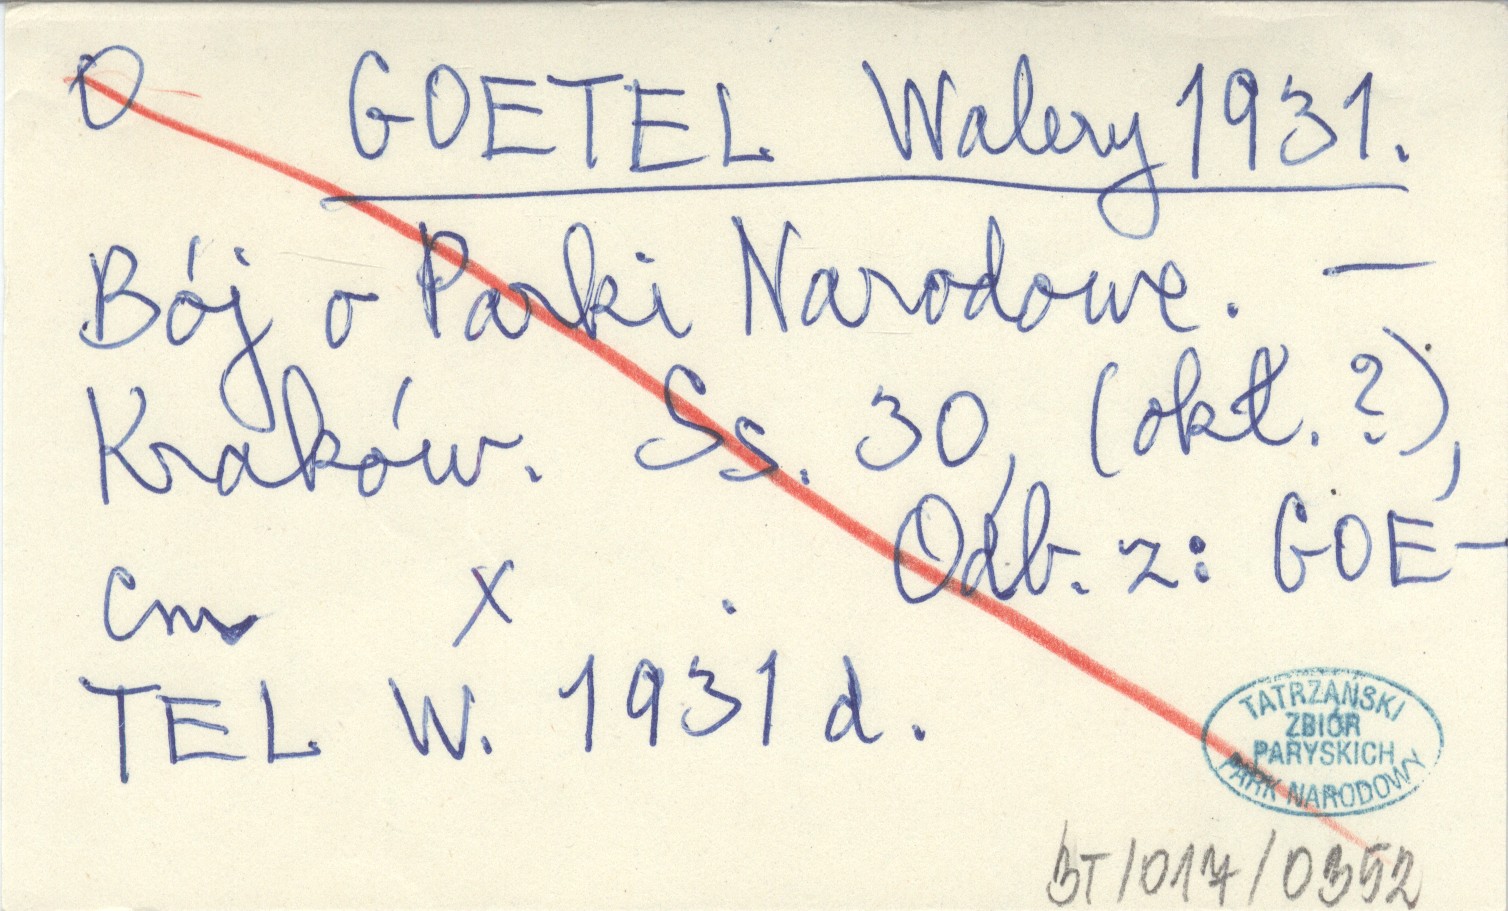 O GOETEL Walery 1931.
Bój o Parki Narodowe. —
Kraków. Ss. 30, (okł. ?),
cm x . Odb. z: GOE-
TEL W. 1931 d.
TATRZAŃSKI
ZBIÓR
PARYSKICH
PARK NARODOWY
BT/017/0352